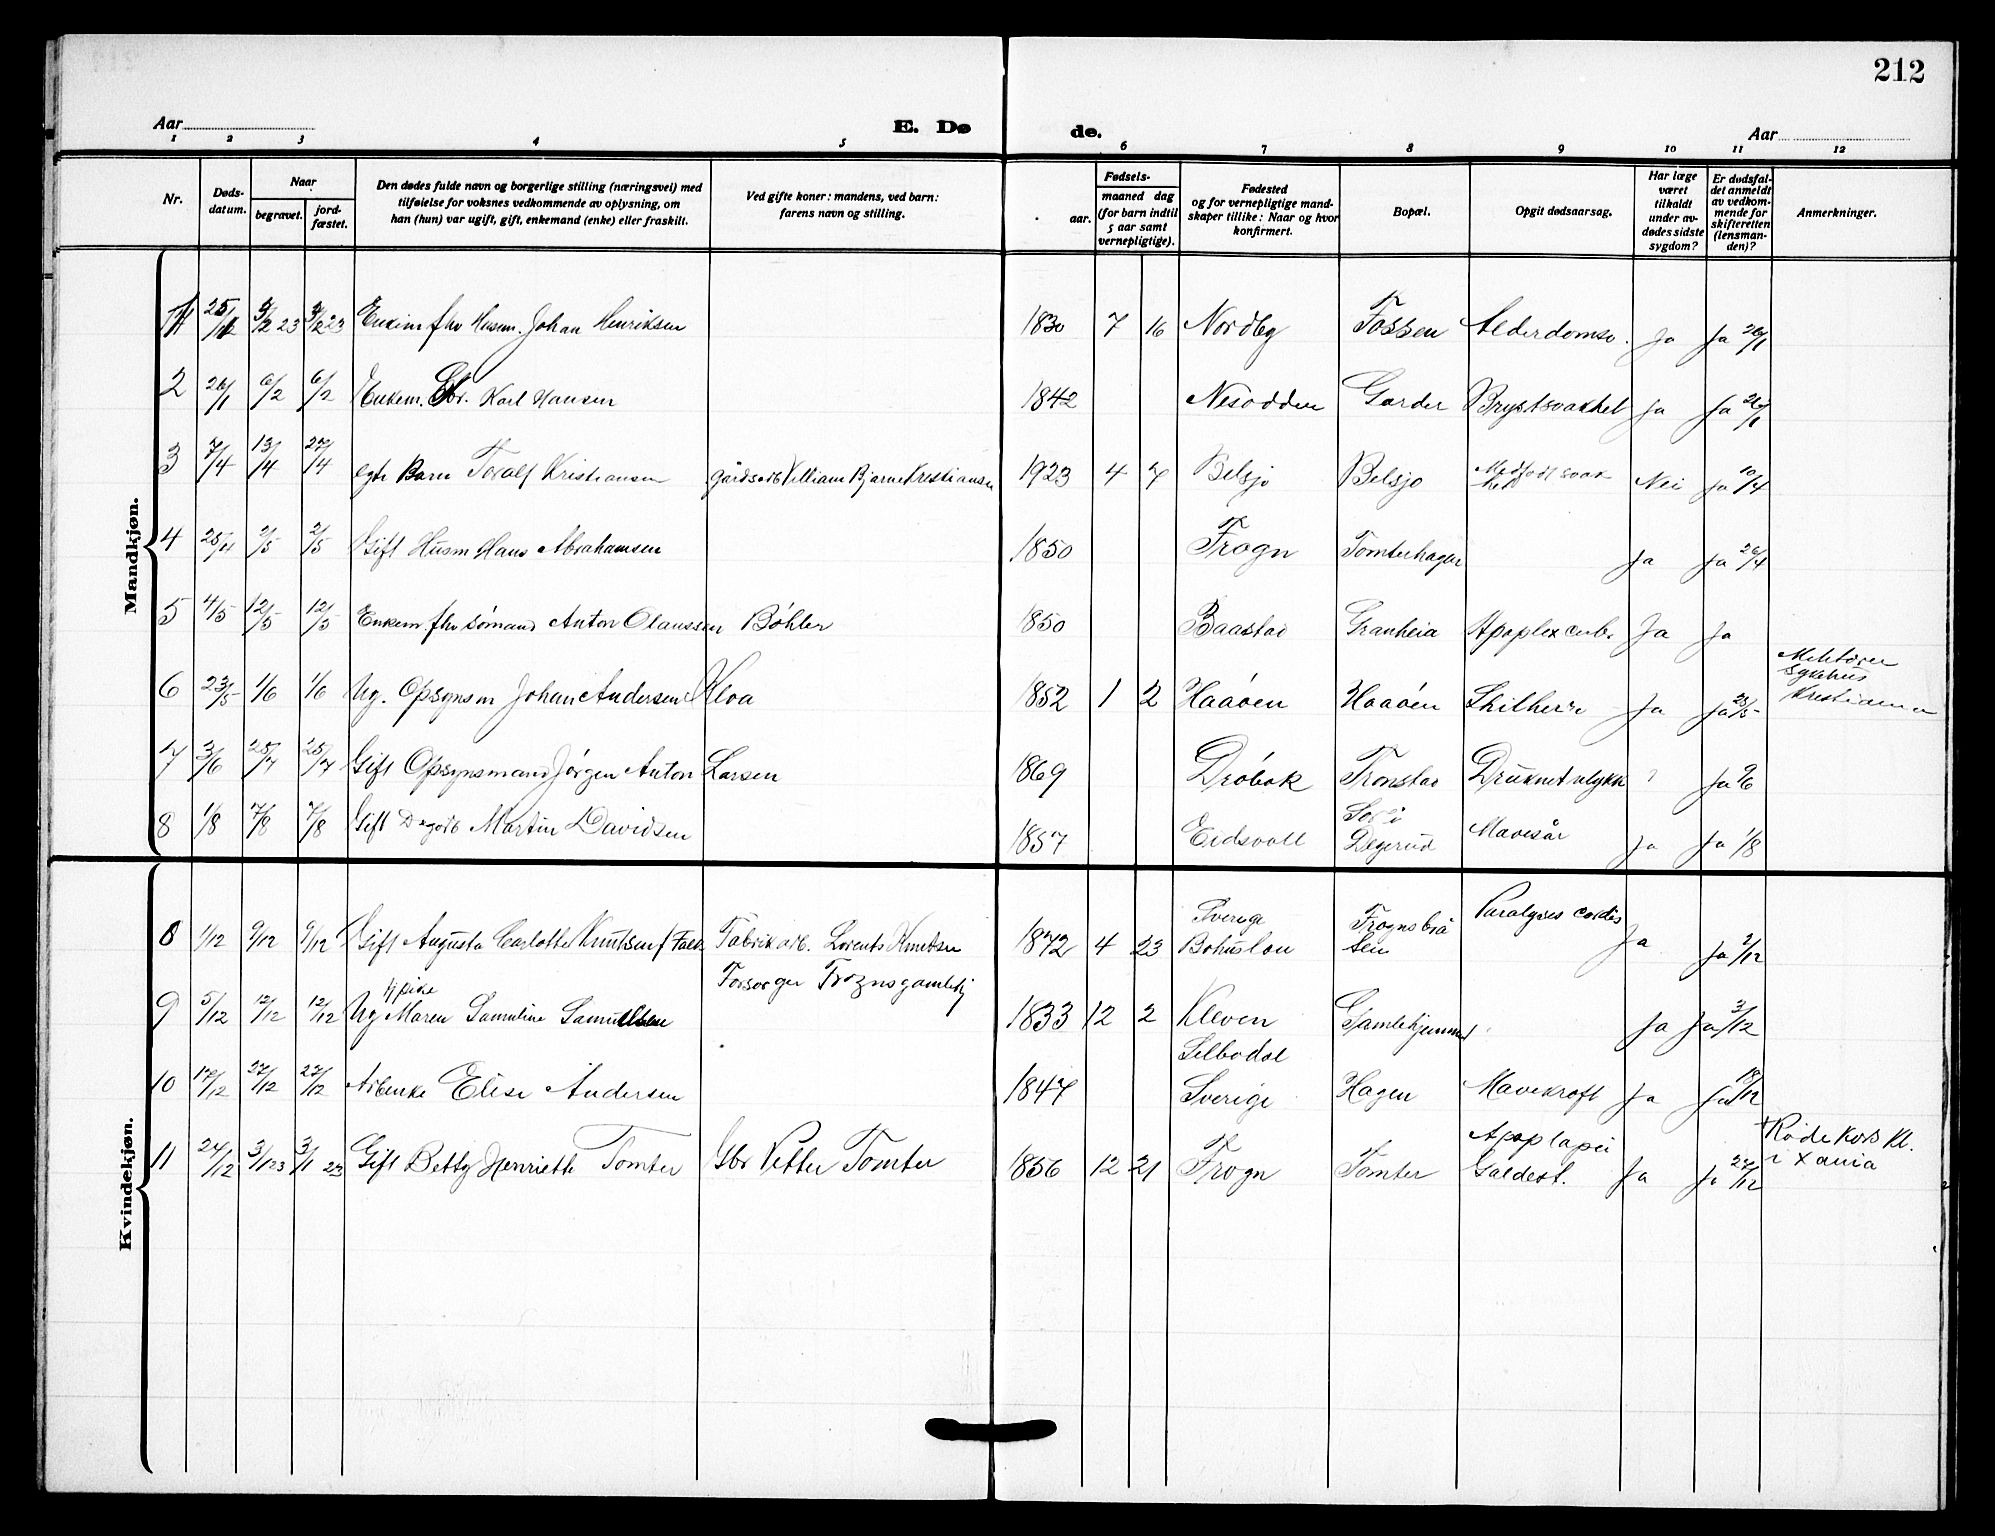 212
Aar E. Dø de. Aar
1 2 3 4 5 6 7 8 9 10 11 12
Nr.
Døds-
datum.
Naar
begravet.
jord-
fæstet.
Den dødes fulde navn og borgerlige stilling (næringsvei) med
tilføielse for voksnes vedkommende av oplysning, om
han (hun) var ugift, gift, enkemand (enke) eller fraskilt.
Ved gifte koner: mandens, ved barn:
farens navn og stilling.
Fødsels-
aar.
maaned dag
(for barn indtil
5 aar samt
vernepligtige).
Fødested
og for vernepligtige mand-
skaper tillike: Naar og hvor
konfirmert.
Bopæl.
Opgit dødsaarsag.
Har læge
været
tilkaldt
under av-
dødes sidste
sygdom?
Er dødsfal-
det anmeldt
av vedkom-
mende for
skifteretten
(lensman-
den)?
Anmerkninger.
Mandkjøn.
1 3/2 23 3/2 23 Enkem fhv Husm. Johan Henriksen 1830 7 16 Nordby Fossen Alderdomsv. Ja Ja 26/1
2 26/1 6/2 6/2 Enkem. Gbr. Karl Hansen 1842 Nesodden Garder Brystsvakhet Ja Ja 26/1
3 7/4 13/4 27/4 egte Barn Toralf Kristiansen gårdsarb Villiam Bjarne Kristiansen 1923 4 7 Belsjø Belsjø Medfødt svakhet Nei Ja 10/4
4 25/4 2/5 2/5 Gift Husm Hans Abrahamsen 1850 Frogn Tomterhagen Ja Ja 26/4
5 4/5 12/5 12/5 Enkem. fhv sømand Anton Olaussen Bøhler 1850 Baastad Granheia Apoplex cerb. Ja Ja
6 23/5 1/6 1/6 Ug. Opsynsm Johan Andersen Kloa 1852 1 2 Haaøen Haaøen Ja Ja 25/5 Militære
sykehus
Kristiania
7 3/6 25/7 25/7 Gift Opsynsmand Jørgen Anton Larsen 1869 Drøbak Tronstad Druknet ulykke ? Ja 9/6
8 1/8 7/8 7/8 Gift Dagarb Martin Davidsen 1857 Eidsvoll
Degerud Mavesår Ja Ja 1/8
Kvindekjøn.
8 1/12 9/12 9/12 Gift Augusta Carlotte Knutsen f Falk Fabrikarb. Lorents Knutsen 1872 4 23 Sverige
Bohuslen Frognsbråten Paralyses cordis Ja Ja 2/12
9 5/12 12/12 12/12 Ug pike Maren Samuline Samuelsen Forsorger Frogns gamlehj 1833 12 2 Kleven Gamlehjemmet Ja Ja 3/12
10 17/12 27/12 27/12 Arbenke Elise Andersen 1847 Silbodal
Sverige Hagen Mavekræft Ja Ja 18/12
11 24/12 3/1 23 3/1 23 Gift Betty Henriette Tomter Gbr Petter Tomter 1856 12 21 Frogn Tomter
Galdest. Ja Ja 27/12 Røde Kors Kl.
i Xania